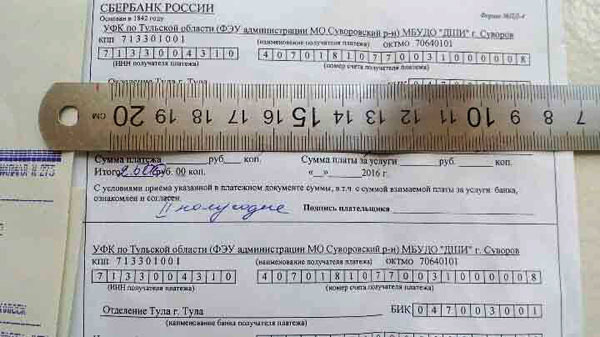 СБЕРБАНК РОССИИ
Основан в 1842 году
Форма №ПД-4
УФК по Тульской области (ФЭУ администрации МО Суворовский р-н) МБУДО "ДШИ" г. Суворов
КПП 713301001 (наименование получателя платежа) ОКТМО 70640101
7133004310 40701810770003100008
(ИНН получателя платежа) (номер счета получателя платежа)
Отделение Тула г. Тула
СМ 20 19 18 17 16 15 14 13 12 11 10 9 8 7
Сумма платежа руб. коп. Сумма платы за услуги руб. коп.
Итого руб. 00 коп. «__» 2016 г.
С условиями приёма указанной в платежном документе суммы, в т.ч. с суммой взимаемой платы за услуги банка,
ознакомлен и согласен.
II полугодие Подпись плательщика
УФК по Тульской области (ФЭУ администрации МО Суворовский р-н) МБУДО "ДШИ" г. Суворов
КПП 713301001 (наименование получателя платежа) ОКТМО 70640101
7133004310 40701810770003100008
(ИНН получателя платежа) (номер счета получателя платежа)
Отделение Тула г. Тула БИК 047003001
(наименование банка получателя платежа)